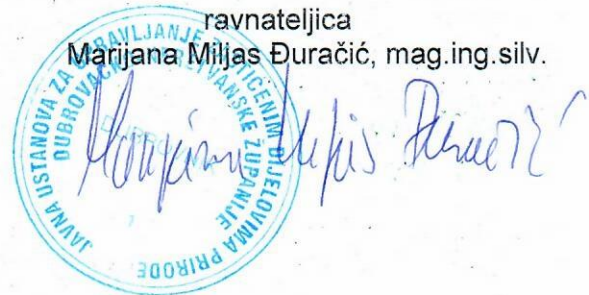 ravnateljica
Marijana Miljas Đuračić, mag.ing.silv.
JAVNA USTANOVA ZA UPRAVLJANJE ZAŠTIĆENIM DIJELOVIMA PRIRODE
DUBROVAČKO-NERETVANSKE ŽUPANIJE
DUBROVNIK
Marijana Miljas Đuračić